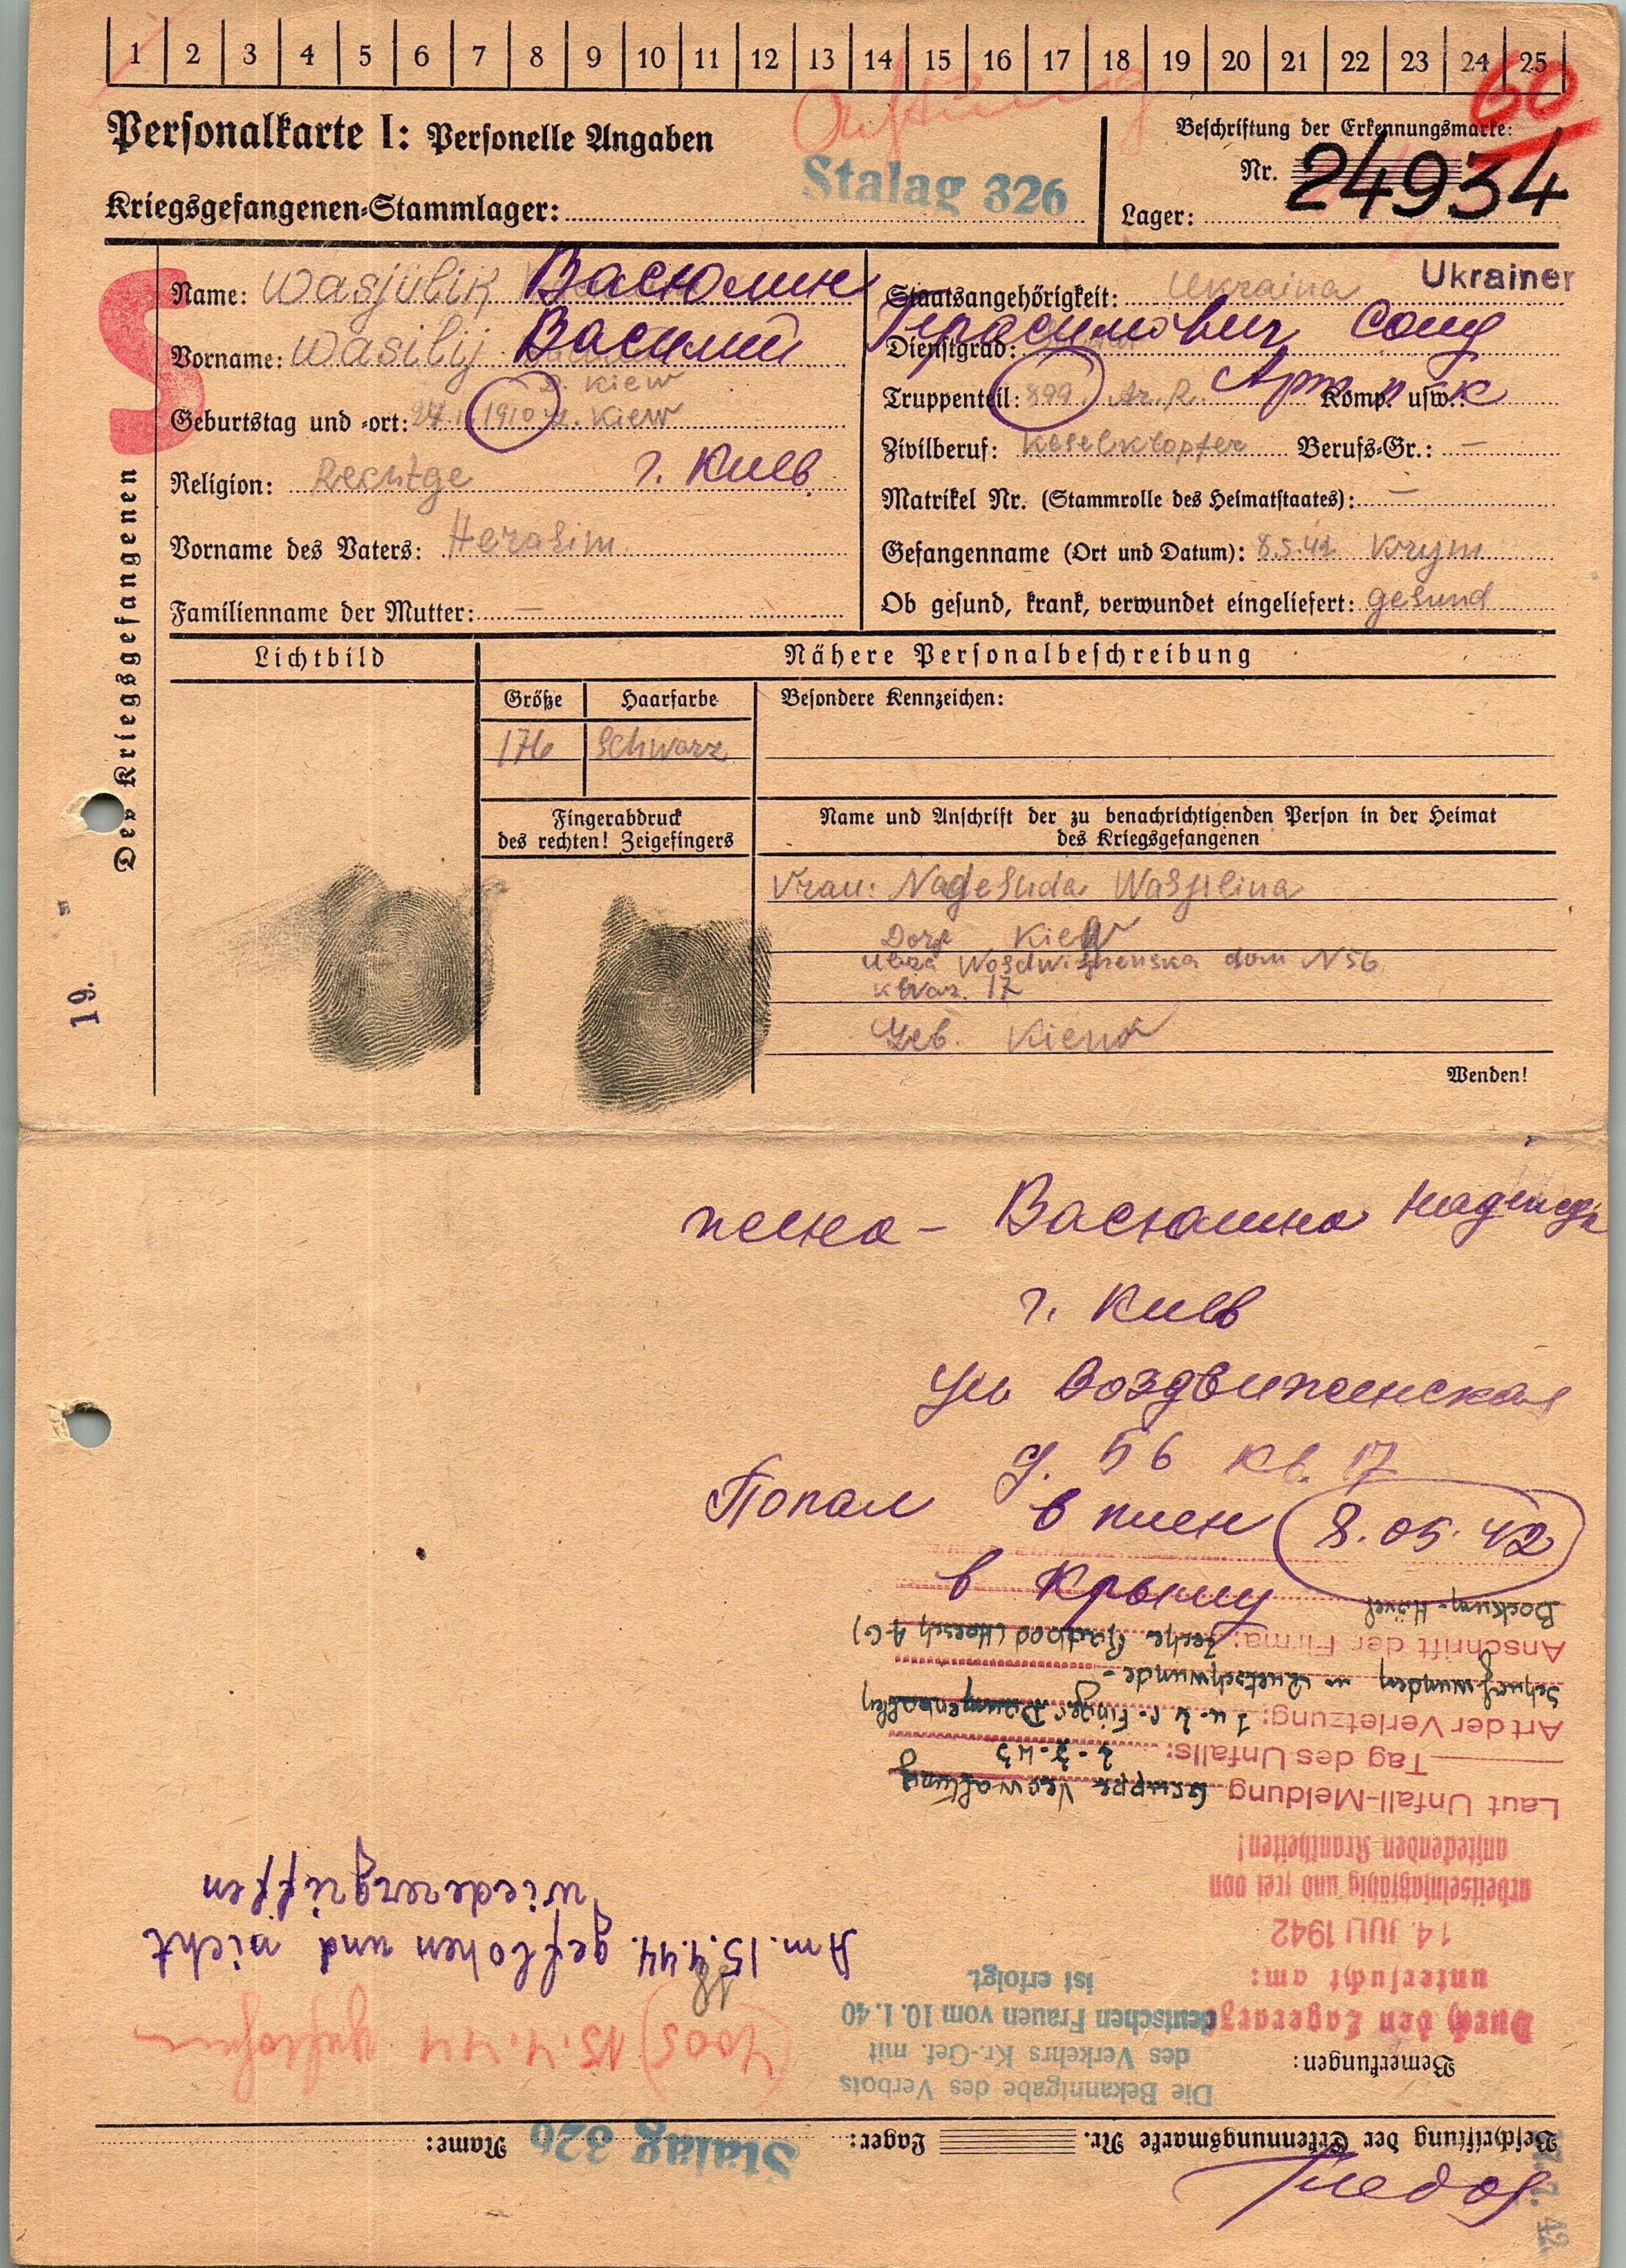 1 2 3 4 5 6 7 8 9 10 11 12 13 14 15 16 17 18 19 20 21 22 23 24 25
60
Personalkarte I: Personelle Angaben
Kriegsgefangenen-Stammlager: Stalag 326
Beschriftung der Erkennungsmarke:
Nr. 24934
Lager:
Des Kriegsgefangenen
S
Name: Wasjulik Васюлин
Vorname: Wasilij Василий
D. Kiew
Geburtstag und -ort: 1910 Kiew
Religion: Rechtge г. Киев
Vorname des Vaters: Herasim
Familienname der Mutter: —
Staatsangehörigkeit: Ukraina Ukrainer
Герасимович Солд
Dienstgrad:
Truppenteil: 899 Ar. R. Komp. usw.:
Zivilberuf: Keselklopfer Berufs-Gr.: —
Matrikel Nr. (Stammrolle des Heimatstaates): —
Gefangenname (Ort und Datum): 8.5.42 Krym
Ob gesund, krank, verwundet eingeliefert: gesund
Lichtbild
Nähere Personalbeschreibung
Größe Haarfarbe Besondere Kennzeichen:
176 Schwarz
Fingerabdruck
des rechten! Zeigefingers
Name und Anschrift der zu benachrichtigenden Person in der Heimat
des Kriegsgefangenen
Vrau: Nageshda Wasjlina
Dorf Kiew
Uliza Wosdwishenska dom N 56
kwar. 17
Geb. Kiew
Wenden!
19.
жена – Васюлина Надежда
г. Киев
ул Воздвиженская
д. 56 кв. 17
Попал в плен 8.05.42
в Крыму
Beschriftung der Erkennungsmarke Nr. Lager: Stalag 326 Name:
Bemerkungen:
Die Bekanntgabe des Verbots
des Verkehrs Kr.-Gef. mit
deutschen Frauen vom 10.1.40
ist erfolgt.
15.4.44 geflohen
Durch den Lagerarzt
untersucht am:
14. JULI 1942
arbeitseinsatzfähig und frei von
ansteckenden Krankheiten!
Am. 15.4.44. geflohen und nicht
wiederergriffen
Laut Unfall-Meldung Gruppe Verwaltung
Tag des Unfalls: 2-7-43
Art der Verletzung: 1 u. 2 r. Finger Daumenballen
Schürfwunden u. Quetschwunde-
Anschrift der Firma: Zeche Radbod (Hoesch A-G)
Bockum-Hövel